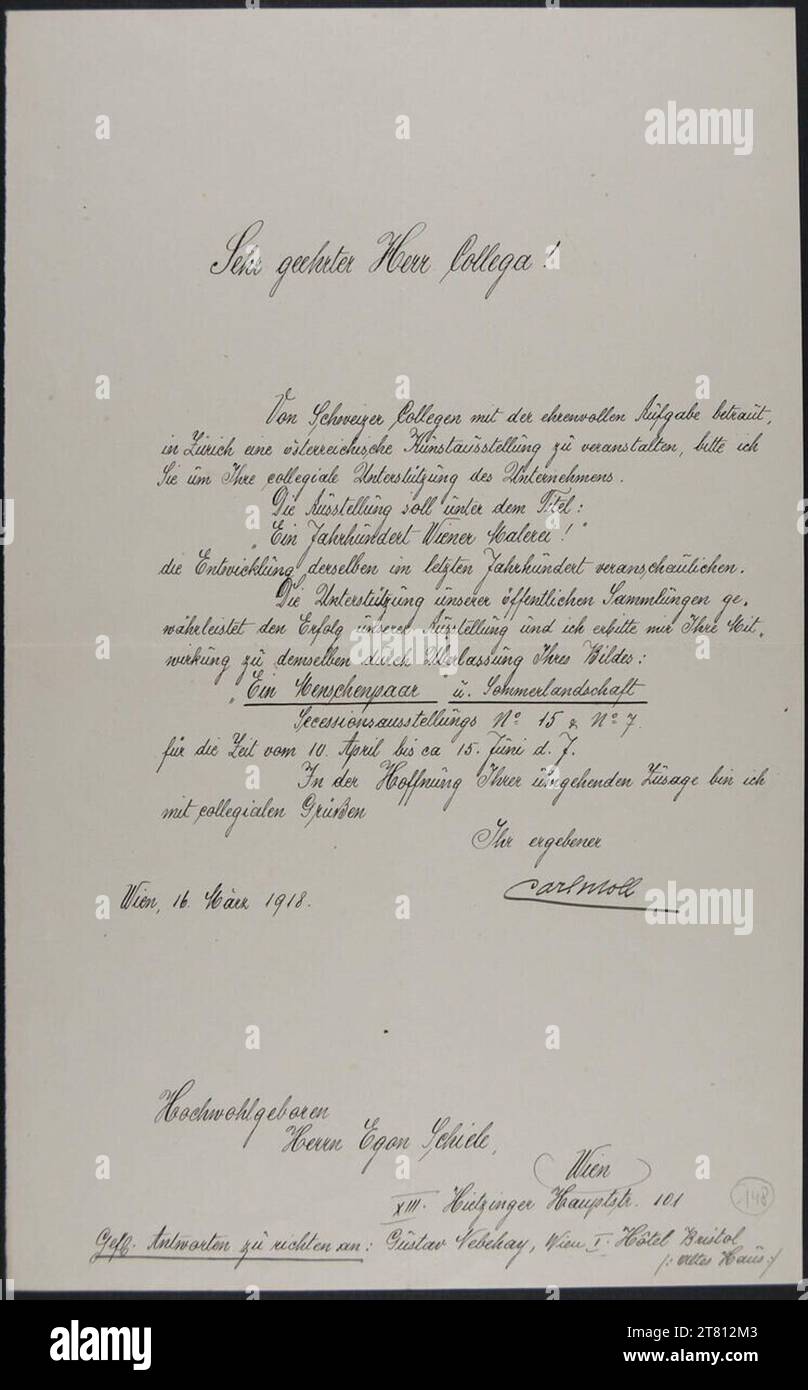 Sehr geehrter Herr Collega!
Von Schweizer Collegen mit der ehrenvollen Aufgabe betraut,
in Zürich eine österreichische Kunstausstellung zu veranstalten, bitte ich
Sie um Ihre collegiale Unterstützung des Unternehmens.
Die Ausstellung soll unter dem Titel:
„Ein Jahrhundert Wiener Malerei!"
die Entwicklung derselben im letzten Jahrhundert veranschaulichen.
Die Unterstützung unserer öffentlichen Sammlungen ge-
währleistet den Erfolg unserer Ausstellung und ich erbitte mir Ihre Mit-
wirkung zu demselben durch Überlassung Ihres Bildes:
„Ein Menschenpaar u. Sommerlandschaft
Secessionsausstellungs No 15 & No 7.
für die Zeit vom 10. April bis ca 15. Juni d. J.
In der Hoffnung Ihrer umgehenden Zusage bin ich
mit collegialen Grüßen
Ihr ergebener
Carl Moll
Wien, 16. März 1918.
Hochwohlgeboren
Herrn Egon Schiele,
Wien
XIII. Hietzinger Hauptstr. 101
148
Gefl. Antworten zu richten an: Gustav Nebehay, Wien I. Hôtel Bristol
/: altes Haus :/
alamy
alamy
alamy
alamy
Image ID: 2T812M3
www.alamy.com